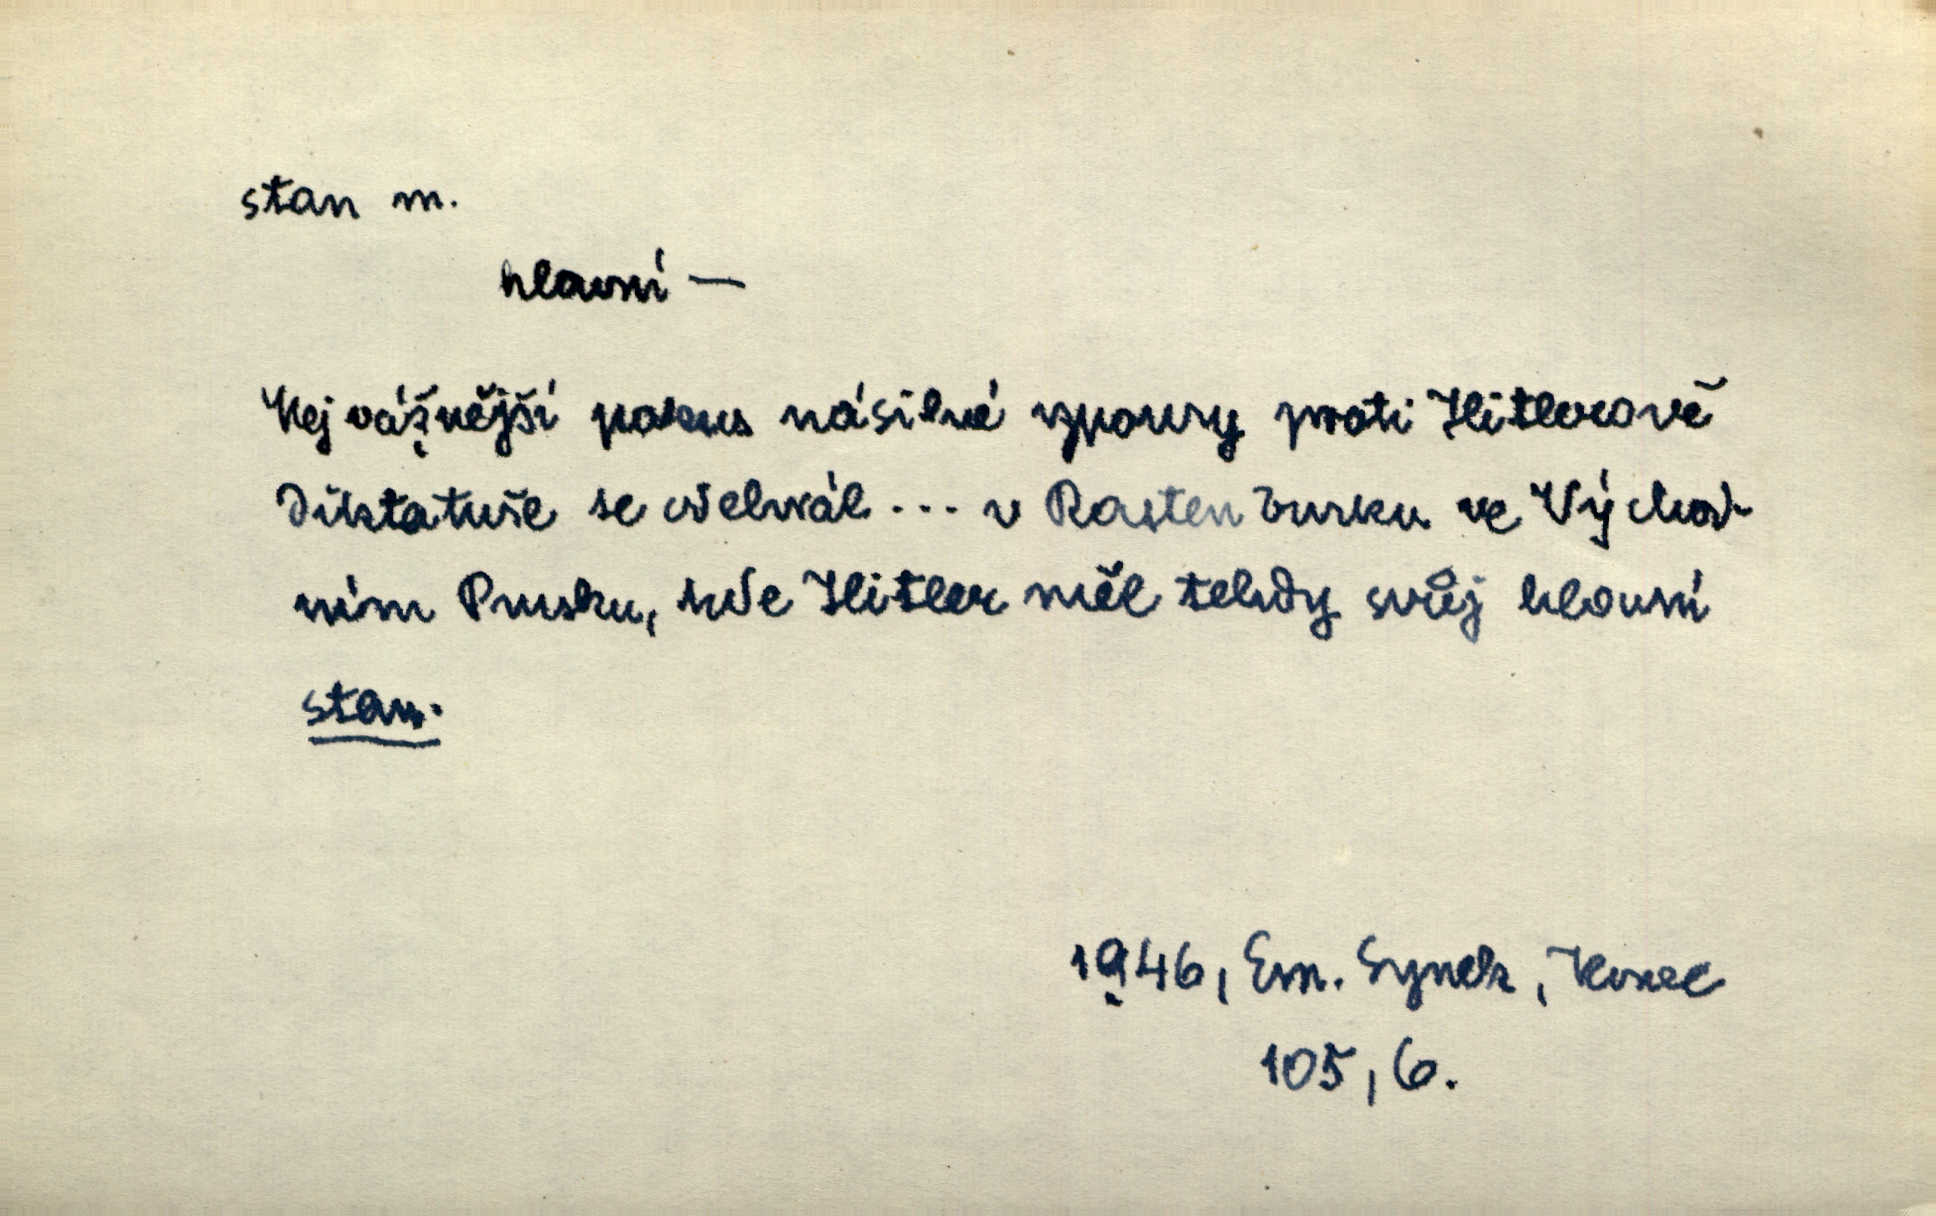 stan m.
hlavní —
Nejvážnější pokus násilné vzpoury proti Hitlerově
diktatuře se odehrál ... v Rastenburku ve Východ-
ním Prusku, kde Hitler měl tehdy svůj hlavní
stan.
1946, Em. Synek,
105, 6.